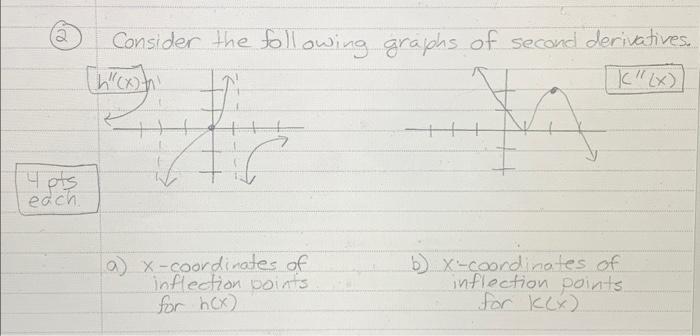 ② Consider the following graphs of second derivatives.
h"(x)
K"(x)
4 pts
each.
a) x-coordinates of
inflection points
for h(x)
b) x-coordinates of
inflection points
for K(x)